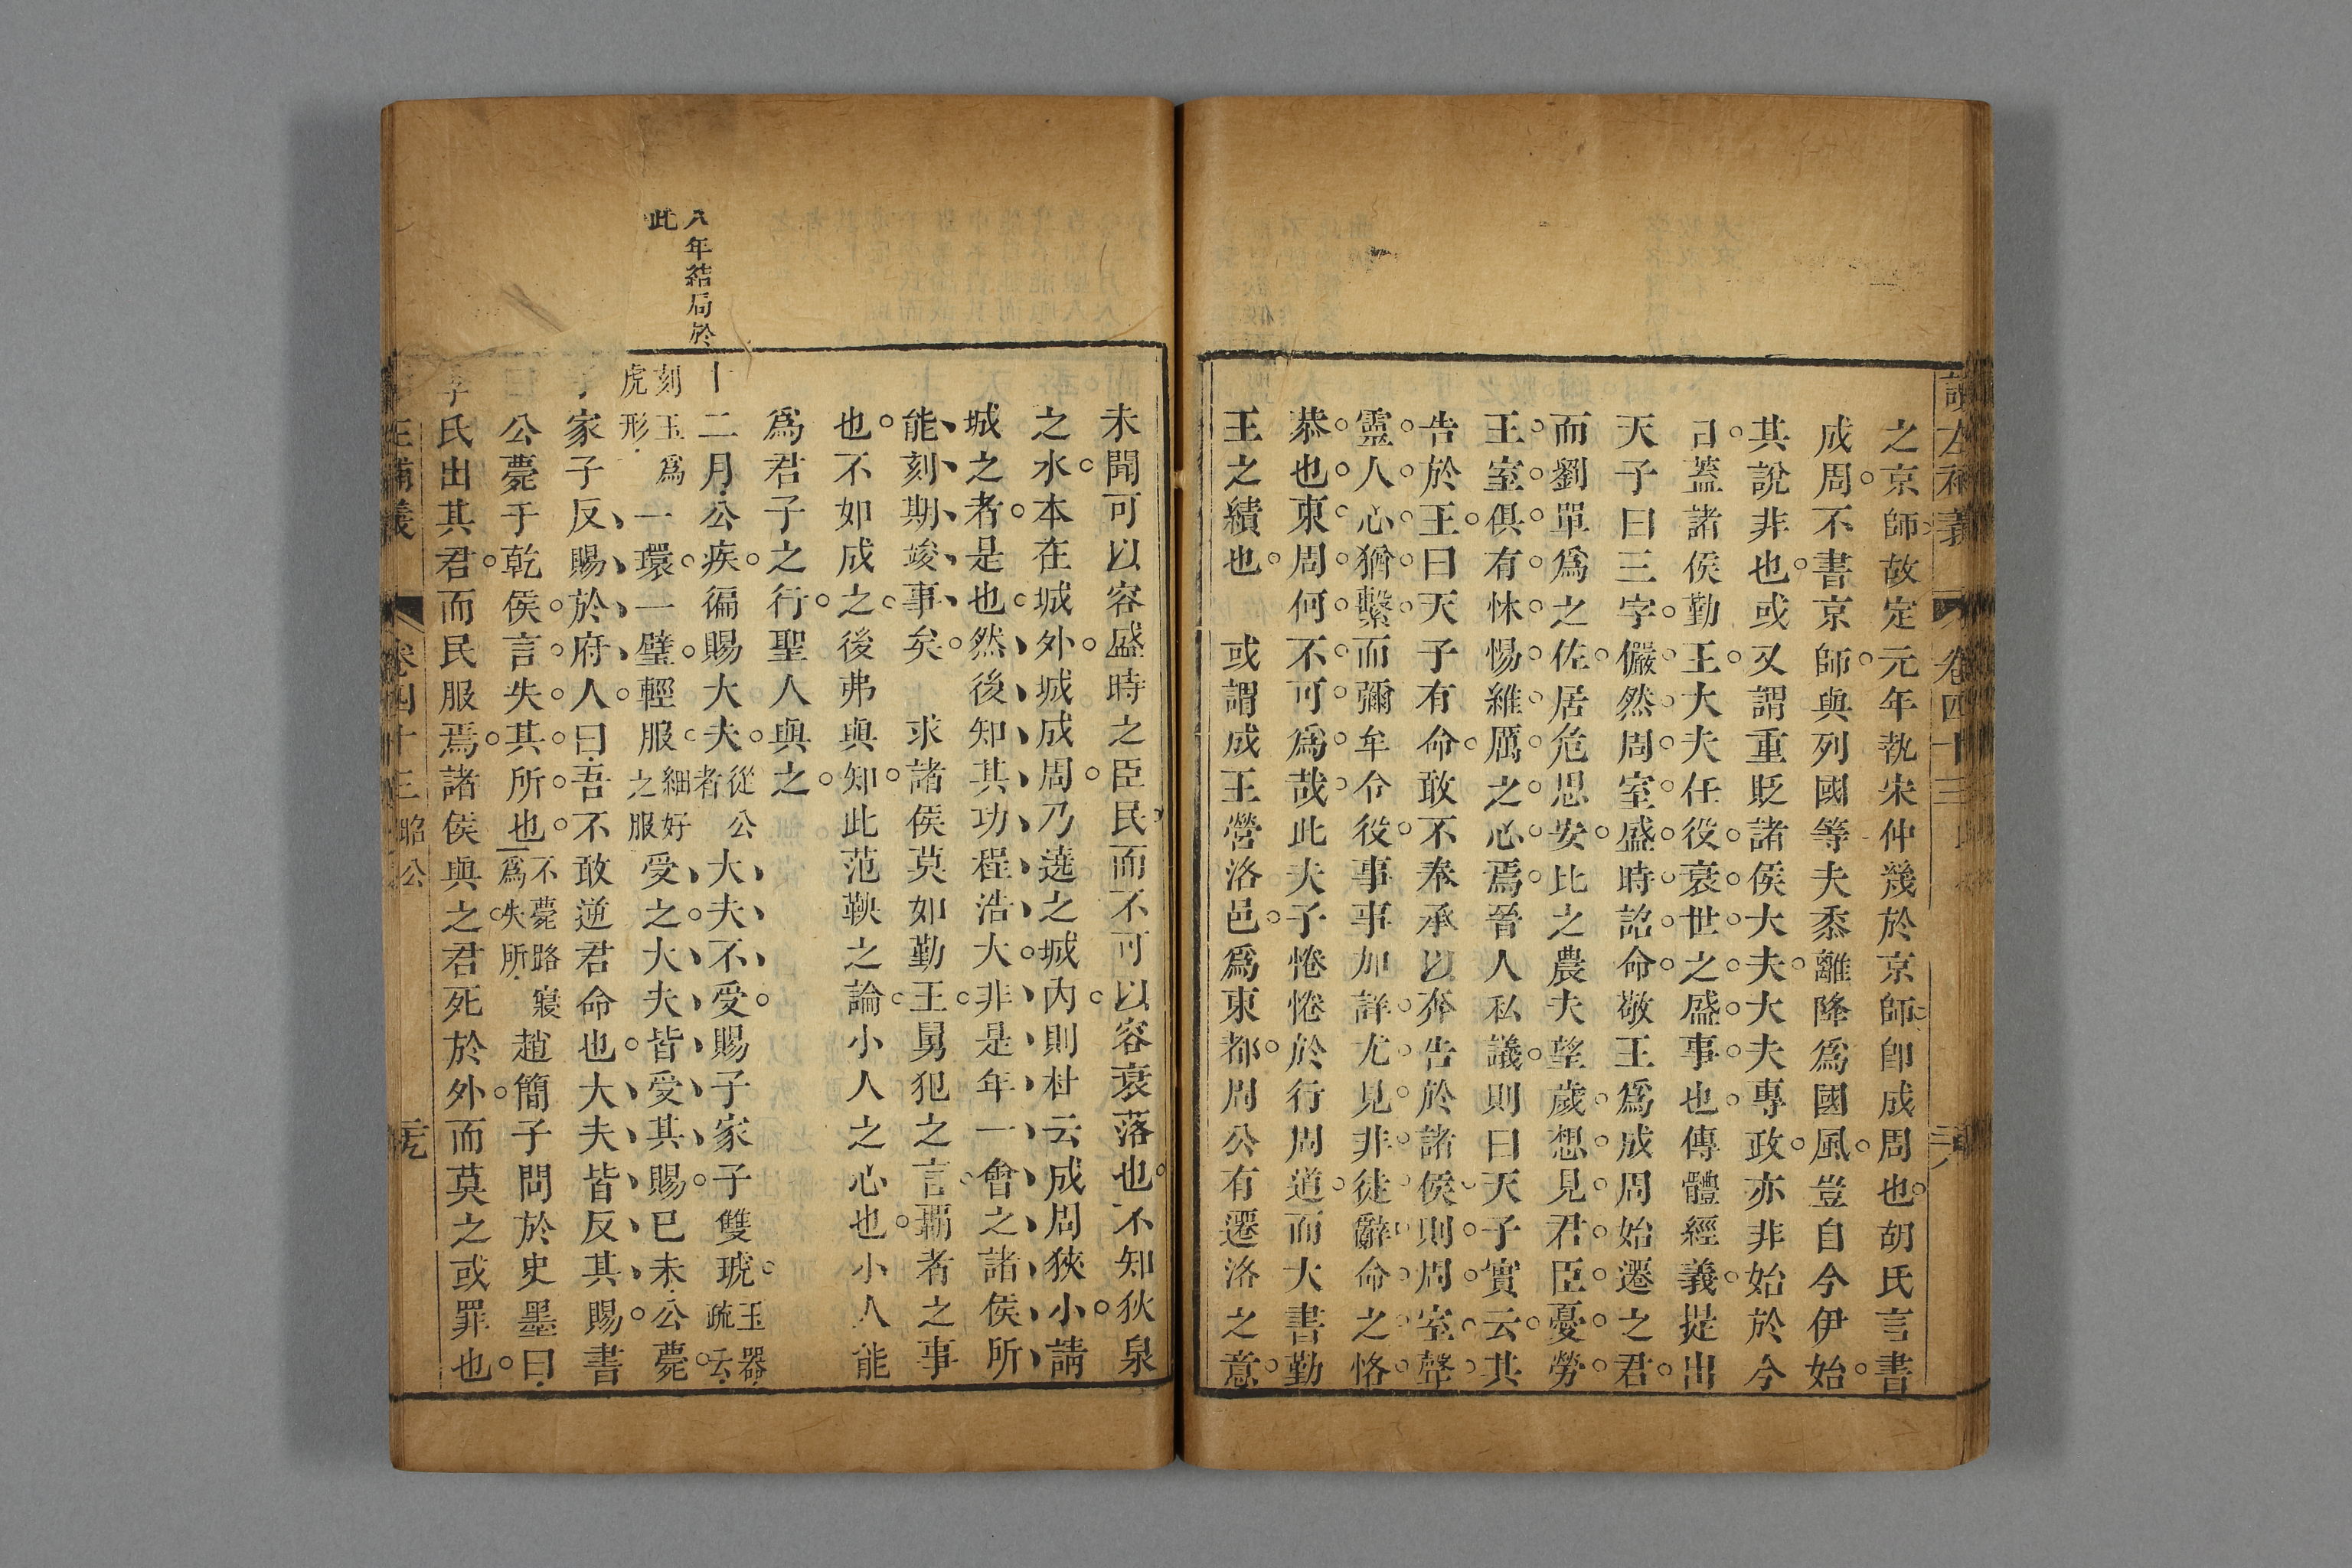 讀左補義 卷四十三
之京師故定元年執宋仲幾於京師卽成周也胡氏言書
成周不書京師與列國等夫黍離降爲國風豈自今伊始
其說非也或又謂重貶諸侯大夫大夫專政亦非始於今
日蓋諸侯勤王大夫任役衰世之盛事也傳體經義提出
天子曰三字儼然周室盛時詔命敬王爲成周始遷之君
而劉單爲之佐居危思安比之農夫望歲想見君臣憂勞
王室俱有怵惕維厲之心焉晉人私議則曰天子實云其
告於王曰天子有命敢不奉承以奔告於諸侯則周室聲
靈人心猶繫而彌牟令役事事加詳尤見非徒辭命之恪
恭也東周何不可爲哉此夫子惓惓於行周道而大書勤
王之績也 或謂成王營洛邑爲東都周公有遷洛之意
未聞可以容盛時之臣民而不可以容衰落也不知狄泉
之水本在城外城成周乃遶之城內則杜云成周狹小請
城之者是也然後知其功程浩大非是年一會之諸侯所
能刻期竣事矣 求諸侯莫如勤王舅犯之言霸者之事
也不如成之後弗與知此范鞅之論小人之心也小人能
爲君子之行聖人與之
八年結局於
此
十二月公疾徧賜大夫從公者大夫不受賜子家子雙琥玉器疏云
刻玉爲虎形一環一璧輕服細好之服受之大夫皆受其賜已未公薨
子家子反賜於府人曰吾不敢逆君命也大夫皆反其賜書
公薨于乾侯言失其所也不薨路寢爲失所趙簡子問於史墨曰
季氏出其君而民服焉諸侯與之君死於外而莫之或罪也
左補義 卷四十三 昭公 三九